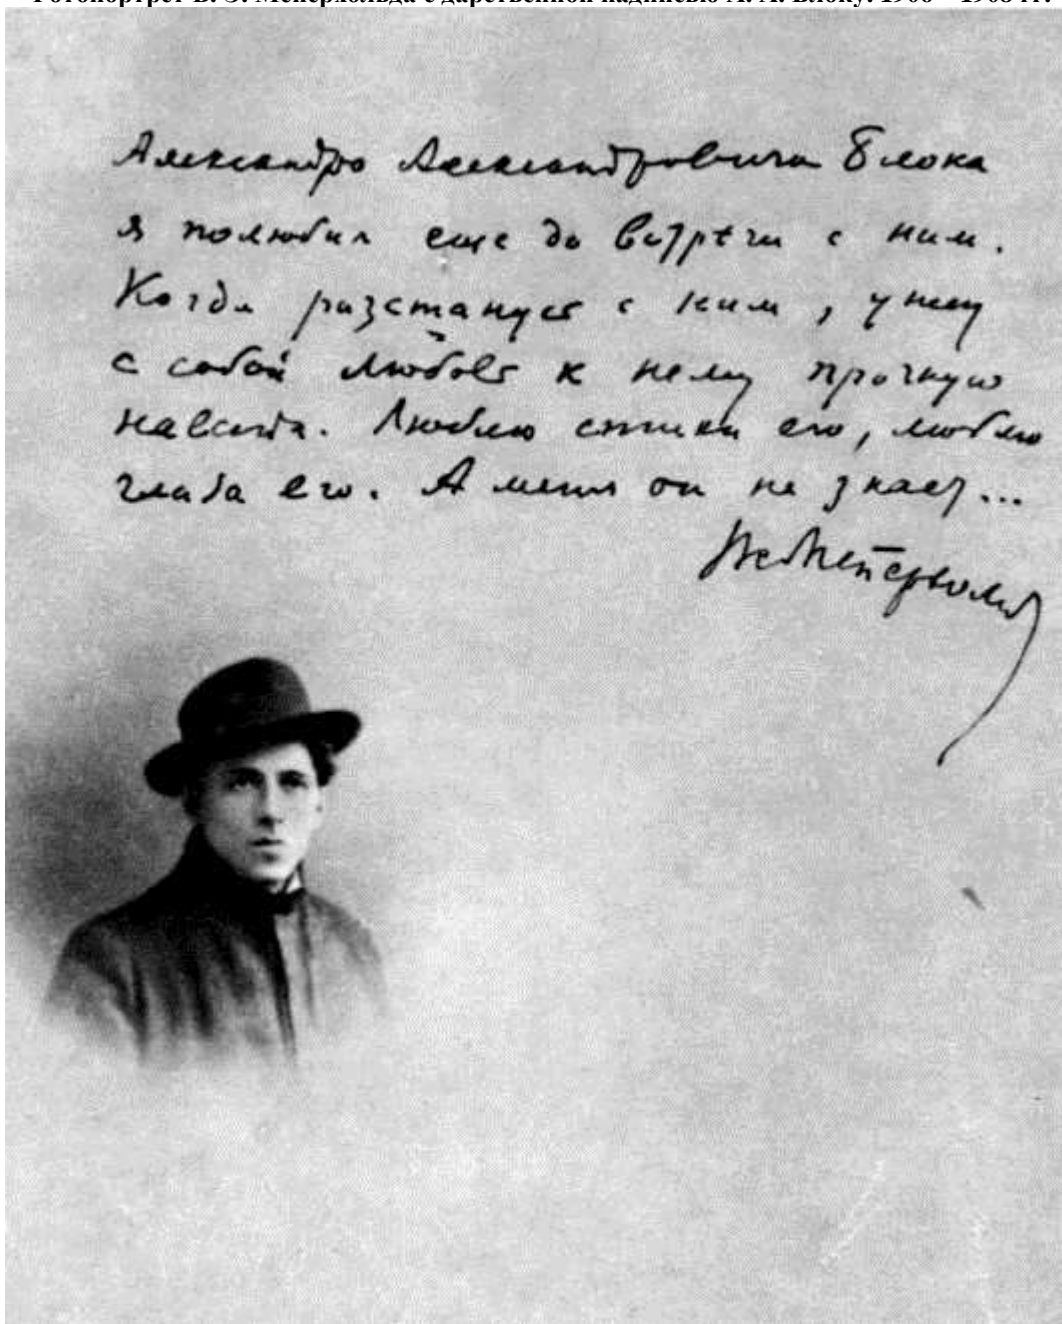 Фотопортрет В. Э. Мейерхольда с дарственной надписью А. А. Блоку. 1906 – 1908 гг.
Александра Александровича Блока
я полюбил еще до встрѣчи с ним.
Когда разстанусь с ним, унесу
с собой любовь к нему прочную
навсегда. Люблю стихи его, люблю
глаза его. А меня он не знает...
Вс Мейерхольд